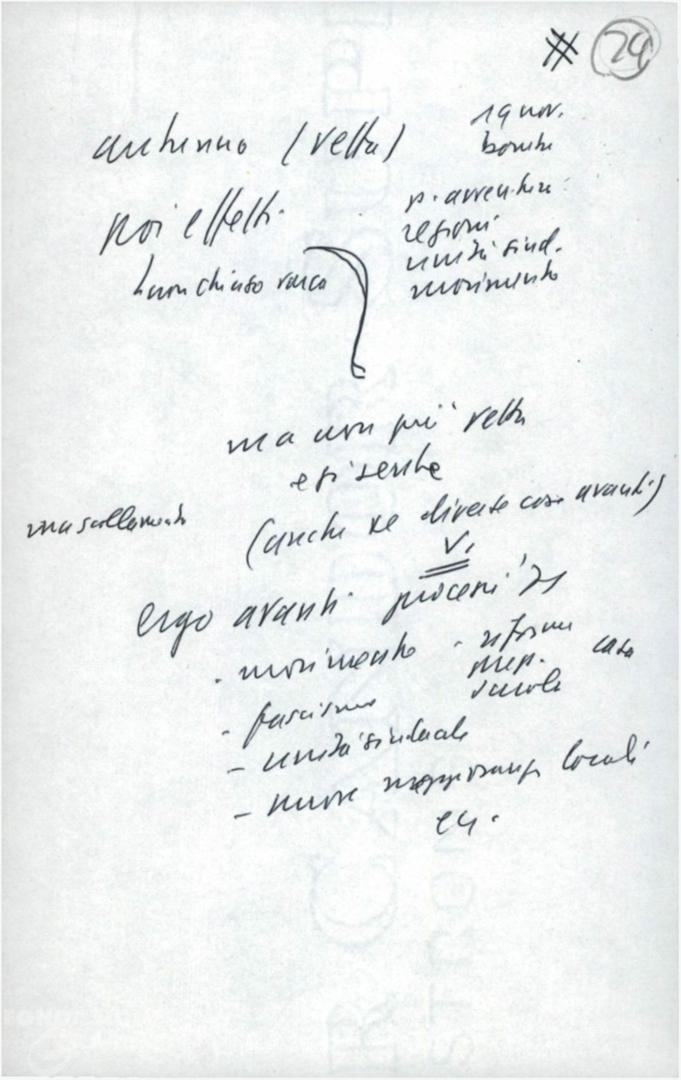 # 24
autunno (vetta)
19 nov.
bombe
poi effetti
regioni
unità sind.
movimento
non chiuso varco
ma non più vetta
e si sente
(anche se diverse cose avanti)
V.
ergo avanti processi '71
- movimento - riforme casa
scuola
- fascismo
- unità sindacale
- nuove maggioranze locali
ecc.